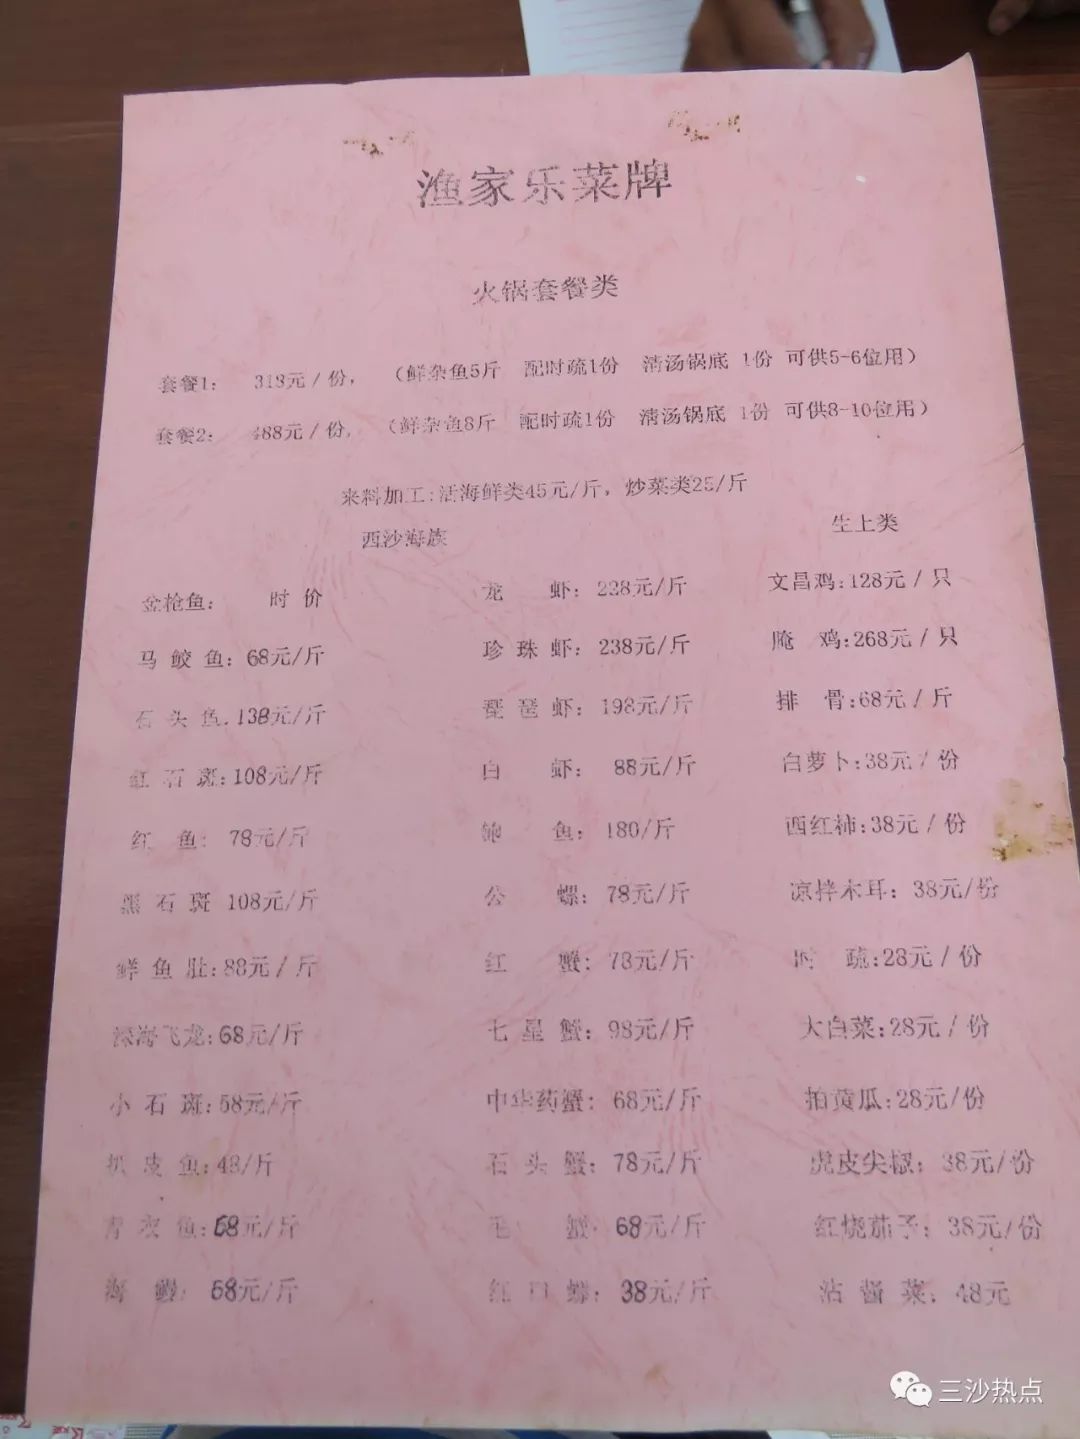 渔家乐菜牌
火锅套餐类
套餐1： 318元/份，（鲜杂鱼5斤 配时疏1份 清汤锅底 1份 可供5-6位用）
套餐2： 488元/份，（鲜杂鱼8斤 配时疏1份 清汤锅底 1份 可供8-10位用）
来料加工:活海鲜类45元/斤，炒菜类25/斤
西沙海族 生上类
金枪鱼： 时价 龙虾：228元/斤 文昌鸡:128元/只
马鲛鱼：68元/斤 珍珠虾：238元/斤 腌鸡:268元/只
石头鱼.138元/斤 琵琶虾：198元/斤 排骨:68元/斤
红石斑:108元/斤 白虾： 88元/斤 白萝卜:38元/份
红鱼： 78元/斤 鲍鱼：180/斤 西红柿:38元/份
黑石斑 108元/斤 公螺：78元/斤 凉拌木耳：38元/份
鲜鱼肚:88元/斤 红蟹：78元/斤 时疏:28元/份
深海飞龙:68元/斤 七星蟹：98元/斤 大白菜:28元/份
小石斑:58元/斤 中华药蟹：68元/斤 拍黄瓜:28元/份
扒皮鱼:48/斤 石头蟹：78元/斤 虎皮尖椒：38元/份
青衣鱼:68元/斤 毛蟹：68元/斤 红烧茄子：38元/份
海鳗：68元/斤 红口螺：38元/斤 沾酱菜：48元
三沙热点